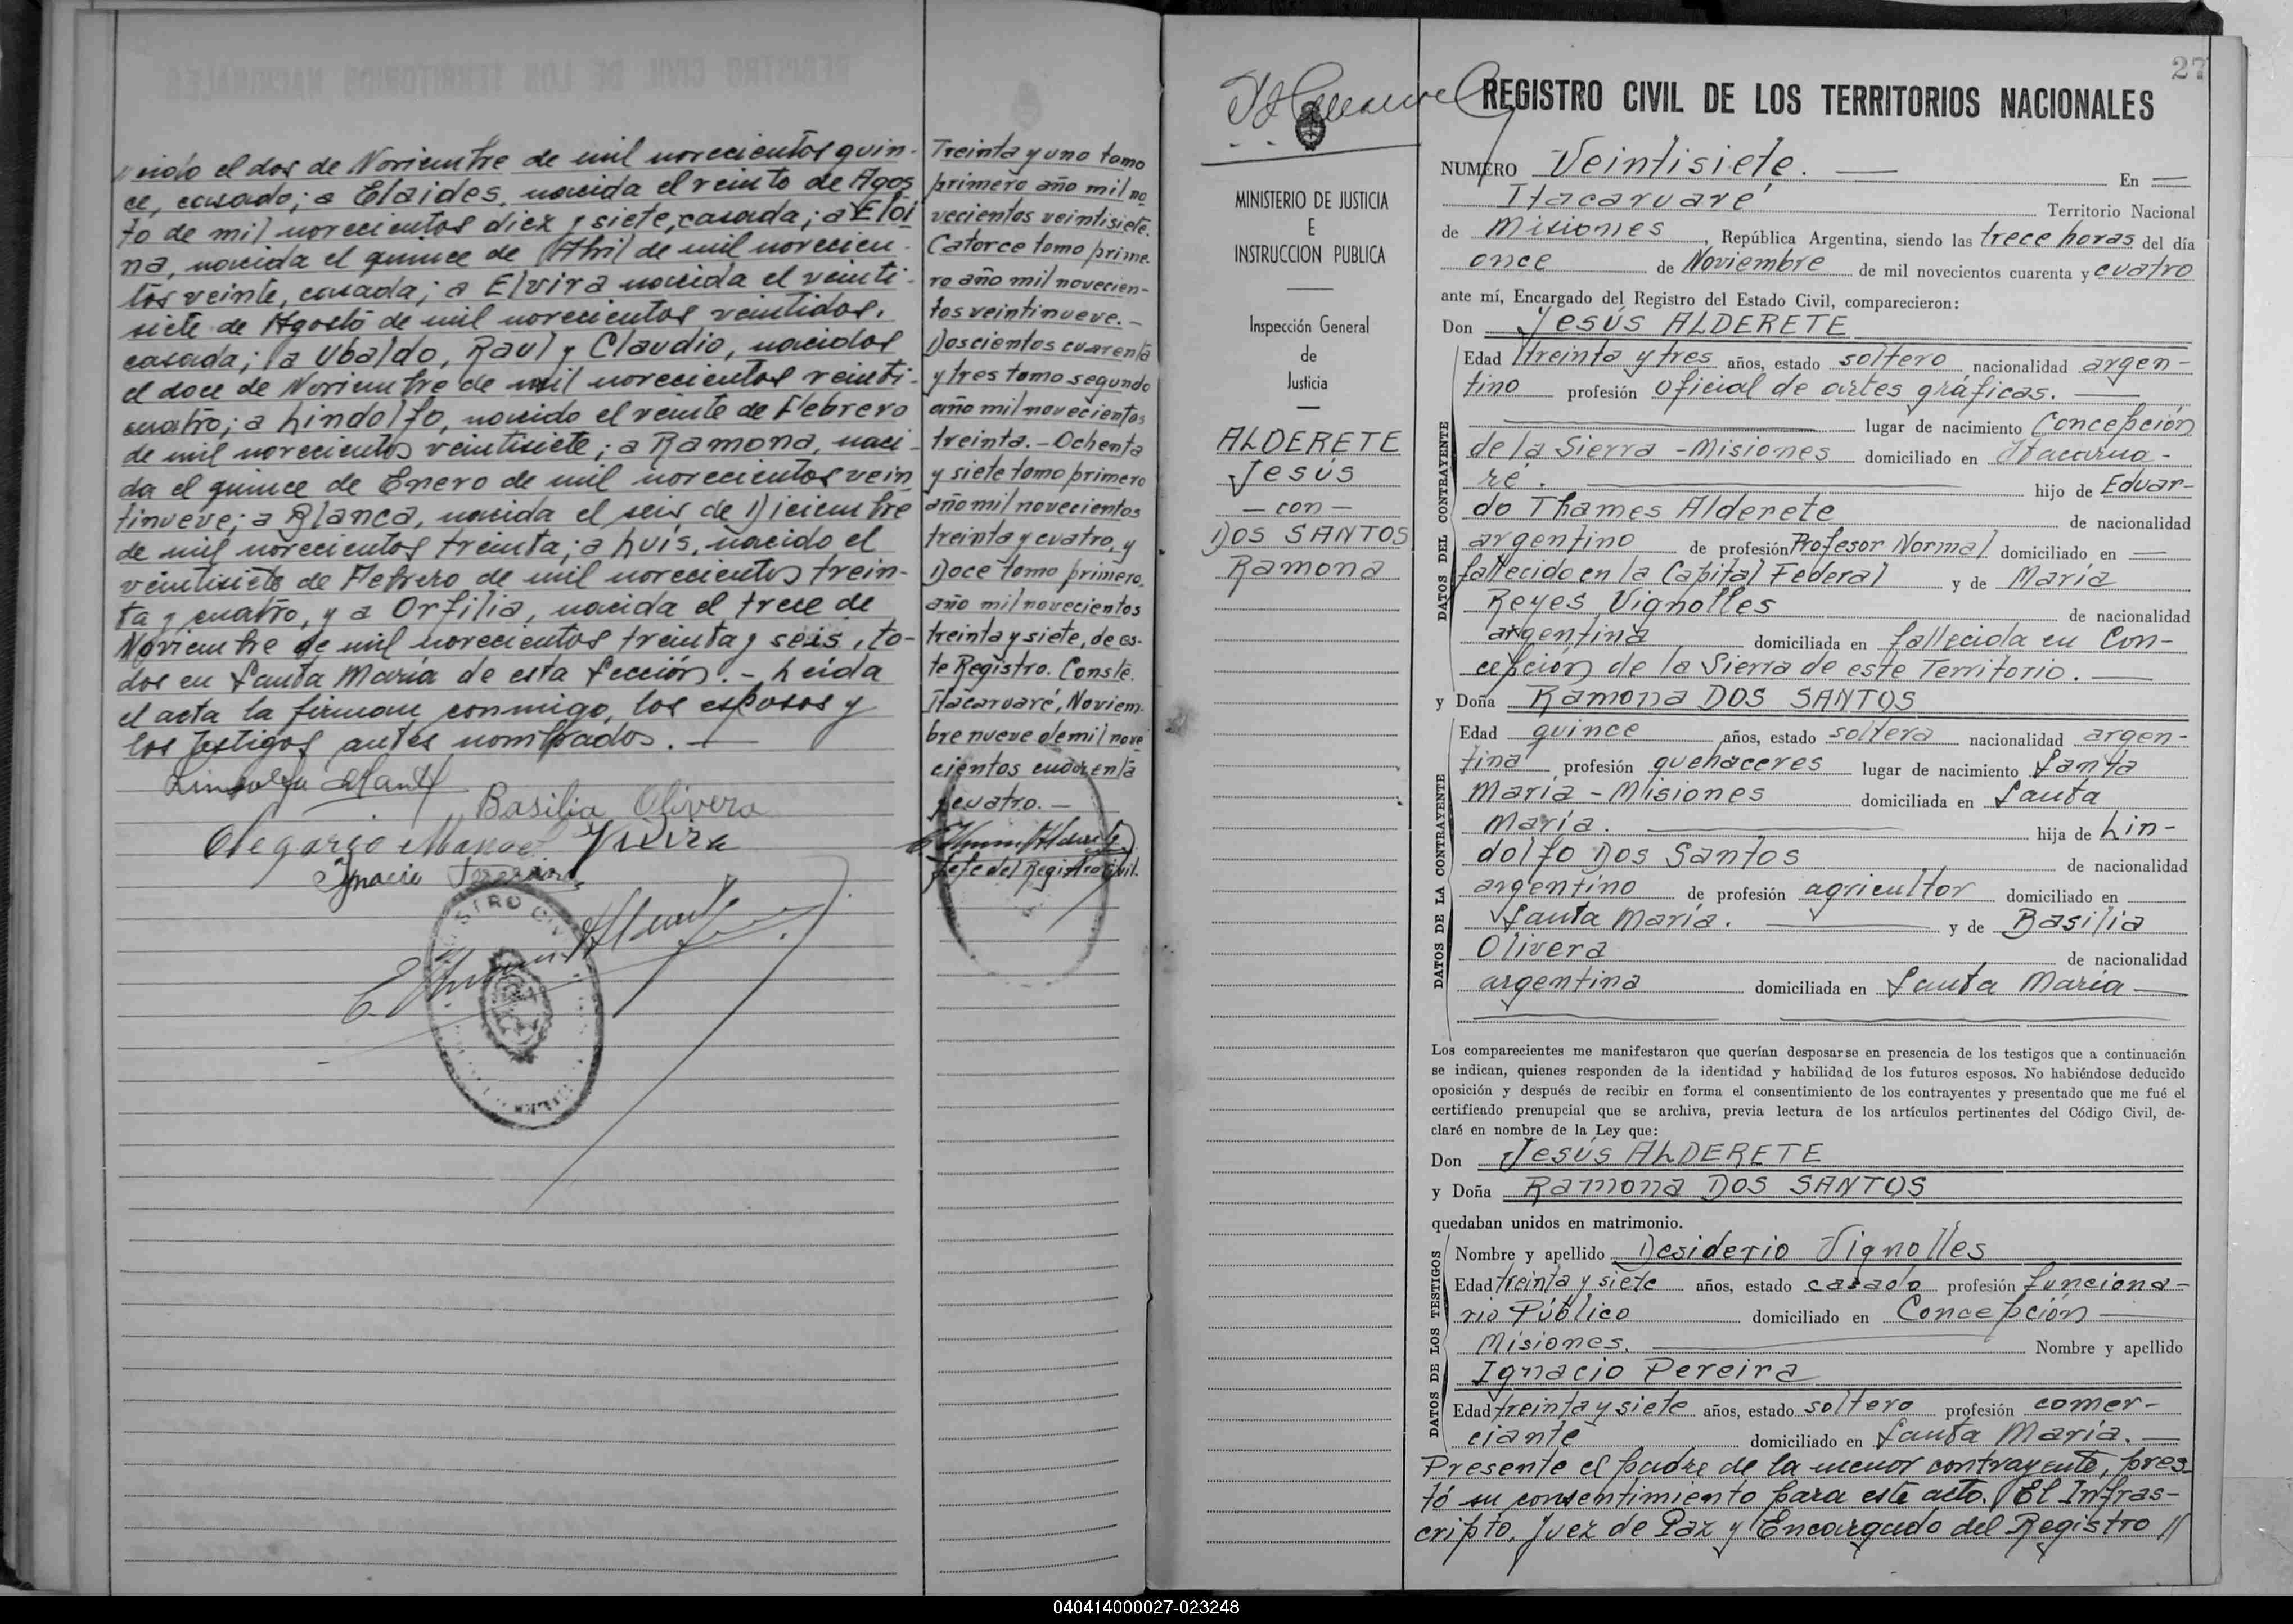 nido el dos de Noviembre de mil novecientos quin-
ce, casado; a Elaides, nacida el veinte de Agos
to de mil novecientos diez y siete, casada; a Eloi
na, nacida el quince de Abril de mil novecien-
tos veinte, casada; a Elvira nacida el veinti-
siete de Agosto de mil novecientos veintidos,
casada; a Ubaldo, Raul y Claudio, nacidos
el doce de Noviembre de mil novecientos veinti-
cuatro; a Lindolfo, nacido el veinte de Febrero
de mil novecientos veintisiete; a Ramona, naci-
da el quince de Enero de mil novecientos vein
tinueve; a Blanca, nacida el seis de Diciembre
de mil novecientos treinta; a Luis, nacido el
veintisiete de Febrero de mil novecientos trein-
ta y cuatro, y a Orfilia, nacida el trece de
Noviembre de mil novecientos treinta y seis, to-
dos en Santa María de esta Sección. - Leida
el acta la firman conmigo, los esposos y
los testigos antes nombrados. —
Basilia Olivera
Olegario Manoel
Ignacio
Treinta y uno tomo
primero año mil no
vecientos veintisiete.
Catorce tomo prime-
ro año mil novecien-
tos veintinueve. -
Doscientos cuarenta
y tres tomo segundo
año mil novecientos
treinta. - Ochenta
y siete tomo primero
año mil novecientos
treinta y cuatro, y
Doce tomo primero,
año mil novecientos
treinta y siete, de es-
te Registro. Conste.
Itacaruaré, Noviem-
bre nueve de mil nove
cientos cuarenta
y cuatro. -
Jefe del Registro Civil.
27
REGISTRO CIVIL DE LOS TERRITORIOS NACIONALES
MINISTERIO DE JUSTICIA
E
INSTRUCCION PUBLICA
Inspección General
de
Justicia
ALDERETE
Jesús
- con -
DOS SANTOS
Ramona
NUMERO Veintisiete. — En —
Itacaruaré Territorio Nacional
de Misiones, República Argentina, siendo las trece horas del día
once de Noviembre de mil novecientos cuarenta y cuatro
ante mí, Encargado del Registro del Estado Civil, comparecieron:
Don Jesús ALDERETE
DATOS DEL CONTRAYENTE
Edad treinta y tres años, estado soltero nacionalidad argen-
tino profesión oficial de artes gráficas. —
lugar de nacimiento Concepción
de la Sierra - Misiones domiciliado en Itacarua-
ré. — hijo de Eduar-
do Thames Alderete de nacionalidad
argentino de profesión Profesor Normal domiciliado en —
fallecido en la Capital Federal y de María
Reyes Vignolles de nacionalidad
argentina domiciliada en fallecida en Con-
cepción de la Sierra de este Territorio. —
y Doña Ramona DOS SANTOS
DATOS DE LA CONTRAYENTE
Edad quince años, estado soltera nacionalidad argen-
tina, profesión quehaceres lugar de nacimiento Santa
María - Misiones domiciliada en Santa
María. — hija de Lin-
dolfo Dos Santos de nacionalidad
argentino de profesión agricultor domiciliado en
Santa María. — y de Basilia
Olivera de nacionalidad
argentina domiciliada en Santa María —
Los comparecientes me manifestaron que querían desposarse en presencia de los testigos que a continuación
se indican, quienes responden de la identidad y habilidad de los futuros esposos. No habiéndose deducido
oposición y después de recibir en forma el consentimiento de los contrayentes y presentado que me fué el
certificado prenupcial que se archiva, previa lectura de los artículos pertinentes del Código Civil, de-
claré en nombre de la Ley que:
Don Jesús ALDERETE
y Doña Ramona DOS SANTOS
quedaban unidos en matrimonio.
DATOS DE LOS TESTIGOS
Nombre y apellido Desiderio Vignolles
Edad treinta y siete años, estado casado profesión funciona-
rio Público domiciliado en Concepción —
Misiones. — Nombre y apellido
Ignacio Pereira
Edad treinta y siete años, estado soltero profesión comer-
ciante domiciliado en Santa María. —
Presente el padre de la menor contrayente, pres-
tó su consentimiento para este acto. El Infras-
cripto, Juez de Paz y Encargado del Registro //
040414000027-023248